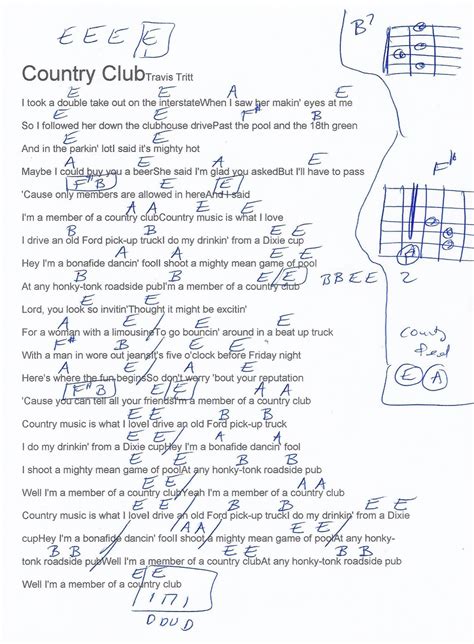 E E E E
B7
Country Club Travis Tritt
E E A E
I took a double take out on the interstateWhen I saw her makin' eyes at me
E F# B
So I followed her down the clubhouse drivePast the pool and the 18th green
E E
And in the parkin' lotI said it's mighty hot
A E A E
Maybe I could buy you a beerShe said I'm glad you askedBut I'll have to pass
F# B
'Cause only members are allowed in hereAnd I said
A A E E
I'm a member of a country clubCountry music is what I love
B B E E
I drive an old Ford pick-up truckI do my drinkin' from a Dixie cup
A A E E
Hey I'm a bonafide dancin' foolI shoot a mighty mean game of pool
B B E E B B E E 2
At any honky-tonk roadside pubI'm a member of a country club
E E
Lord, you look so invitin'Thought it might be excitin'
A E A E
For a woman with a limousineTo go bouncin' around in a beat up truck
F# B E E
With a man in wore out jeansIt's five o'clock before Friday night
A E A E
Here's where the fun beginsSo don't worry 'bout your reputation
F# B E E
'Cause you can tell all your friendsI'm a member of a country club
E E B B
Country music is what I loveI drive an old Ford pick-up truck
E E A A
I do my drinkin' from a Dixie cupHey I'm a bonafide dancin' fool
E E B B
I shoot a mighty mean game of poolAt any honky-tonk roadside pub
E E A A
Well I'm a member of a country clubYeah I'm a member of a country club
E E B B E E
Country music is what I loveI drive an old Ford pick-up truckI do my drinkin' from a Dixie
A A E E
cupHey I'm a bonafide dancin' foolI shoot a mighty mean game of poolAt any honky-
B B E E B B
tonk roadside pubWell I'm a member of a country clubAt any honky-tonk roadside pub
E E
Well I'm a member of a country club
D D U D
F#
A
E A